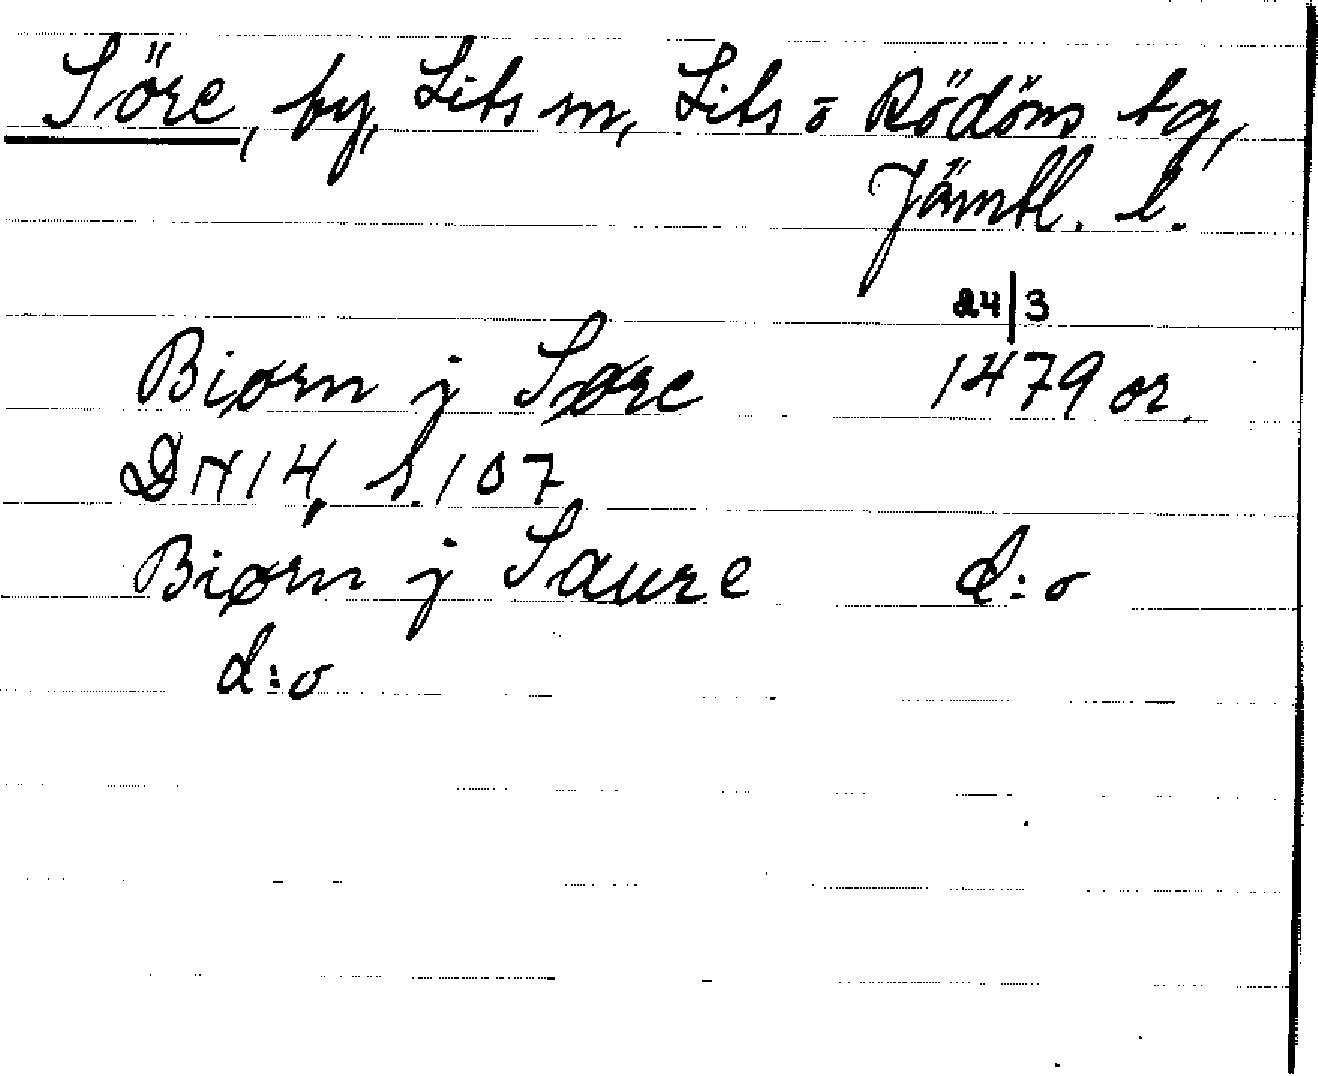 Söre, by, Lits sn, Lits o Rödöns tg,
Jämtl. l.
24|3
Biørn j Søre 1479 or.
DN 14, s. 107
Biørn j Saure d:o
d:o